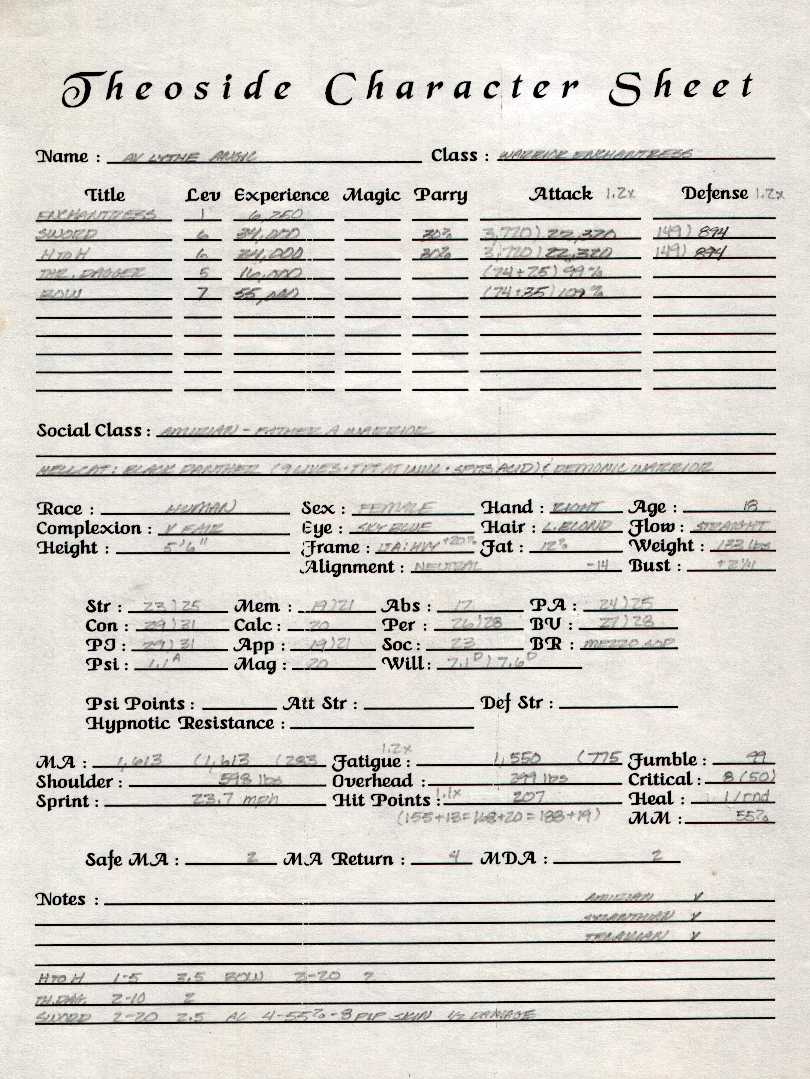 Theoside Character Sheet
Name : AV LYTHE ANGIC Class : WARRIOR ENCHANTRESS
Title Lev Experience Magic Parry Attack 1.2x Defense 1.2x
ENCHANTRESS 1 6,250
SWORD 6 34,000 30% 3,720) 22,320 149) 894
H TO H 6 34,000 30% 3,720) 22,320 149) 894
THR. DAGGER 5 16,000 (74+25) 99%
BOW 7 55,000 (74+35) 109%
Social Class : AMURIAN - FATHER A WARRIOR
HELLCAT: BLACK PANTHER (9 LIVES • TPT AT WILL • SPITS ACID) & DEMONIC WARRIOR
Race : HUMAN Sex : FEMALE Hand : RIGHT Age : 18
Complexion : V FAIR Eye : SKY BLUE Hair : L. BLOND Flow : STRAIGHT
Height : 5'6" Frame : LTA: HVY +20% Fat : 12% Weight : 133 lbs
Alignment : NEUTRAL -14 Bust : +2 1/4
Str : 23) 25 Mem : 19) 21 Abs : 17 PA : 24) 25
Con : 29) 31 Calc : 20 Per : 26) 28 BV : 27) 28
PI : 29) 31 App : 19) 21 Soc : 23 BR : MEZZO SOP
Psi : 1.1 A Mag : 20 Will : 7.1 D) 7.6 D
Psi Points : Att Str : Def Str :
Hypnotic Resistance :
1.2x
MA : 1,613 (1,613 (283 Fatigue : 1,550 (775 Fumble : 99
Shoulder : 598 lbs Overhead : 399 lbs Critical : 8 (50)
Sprint : 23.7 mph Hit Points : 1.1x 207 Heal : 1/rnd
(155+13=168+20=188+19) MM : 55%
Safe MA : 2 MA Return : 4 MDA : 2
Notes : AMURIAN V
V
V
H TO H 1-5 3.5 BOW 3-20 2
TH. DAG. 2-10 2
SWORD 2-20 2.5 AC 4-55%-8 PLP SKIN 1/2 DAMAGE